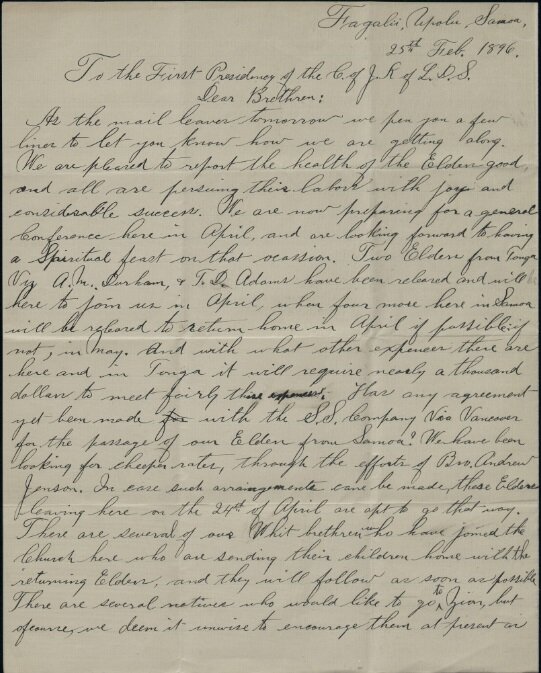 Fagalii, Upolu, Samoa,
25th Feb. 1896.
To the First Presidency of the C. of J. K of L. D. S.
Dear Brethren:
As the mail leaves tomorrow we pen you a few
lines to let you know how we are getting along.
We are pleased to report the health of the Elders good,
and all are persuing their labors with joy and
considerable success. We are now preparing for a general
Conference here in April, and are looking forward to having
a Spiritual feast on that ocassion. Two Elders from Tonga
Viz A. M. Durham, & T. D. Adams have been released and will
here to join us in April, when four more here in Samoa
will be released to return home in April if possible: if
not, in May. And with what other expences there are
here and in Tonga it will require nearly a thousand
dollars to meet fairly these expences. Has any agreement
yet been made for with the S.S. Company Via Vancover
for the passage of our Elders from Samoa? We have been
looking for cheeper rates, through the efforts of Bro. Andrew
Jenson. In case such arrangements cane be made, those Elders
leaving here on the 24th of April are apt to go that way.
There are several of our Whit brethren who have joined the
Church here who are sending their children home with the
returning Elders, and they will follow as soon as possible
There are several natives who would like to go to Zion, but
ofcourse, we deem it unwise to encourage them at present in